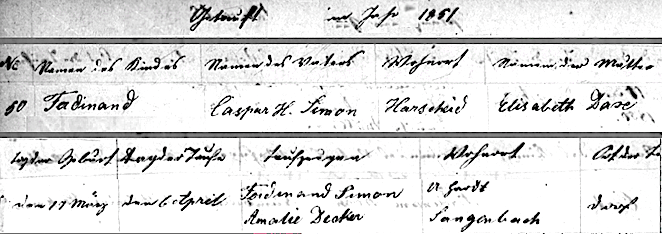 Getauft im Jahr 1851
No Namen des Kindes Namen des Vaters Wohnort Namen der Mutter
50 Ferdinand Caspar H. Simon Harscheid Elisabeth Dase
Tag der Geburt Tag der Taufe Taufzeugen Wohnort
den 17 März den 6 April Ferdinand Simon
Amalie Decker Sangenbach